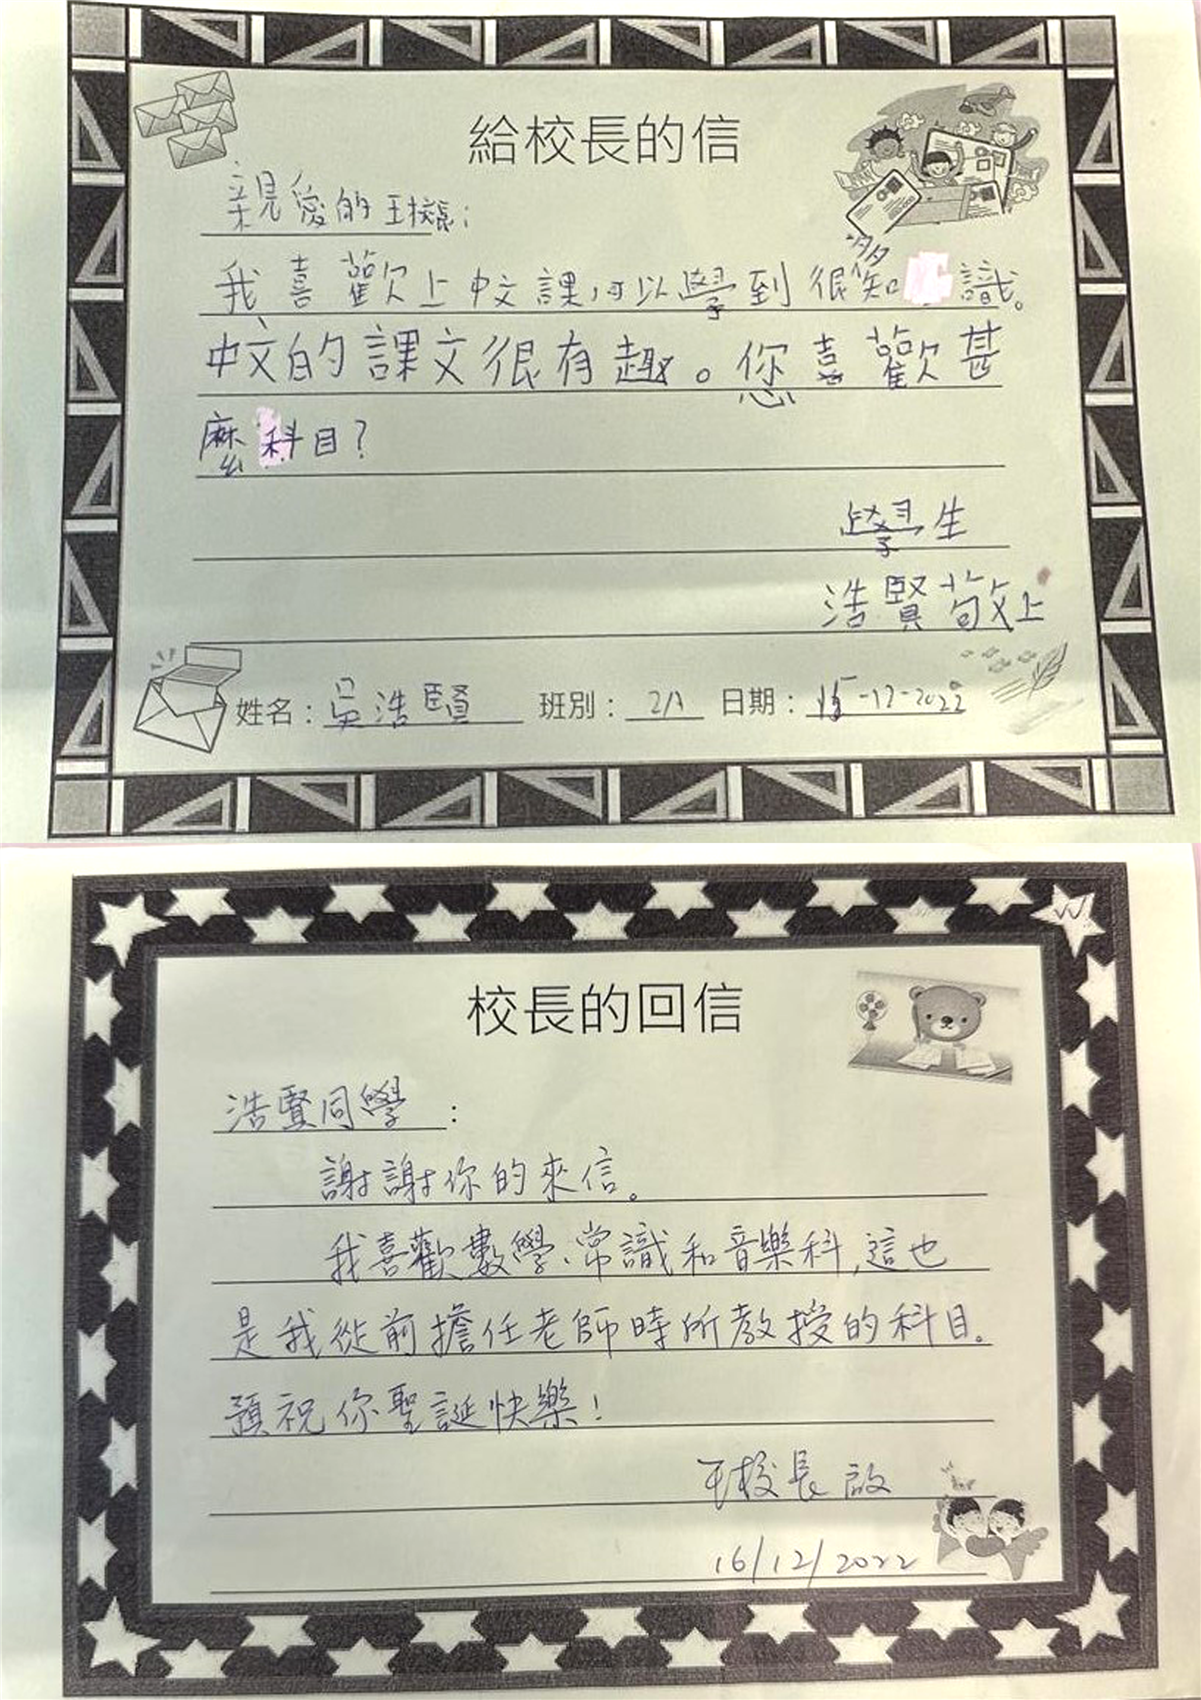 給校長的信
親愛的王校長：
我喜歡上中文課，可以學到很多知識。
中文的課文很有趣。您喜歡甚
麼科目？
學生
浩賢敬上
姓名：吳浩賢 班別：2A 日期：15-12-2022
校長的回信
浩賢同學：
謝謝你的來信。
我喜歡數學、常識和音樂科，這也
是我從前擔任老師時所教授的科目。
預祝你聖誕快樂！
王校長啟
16/12/2022